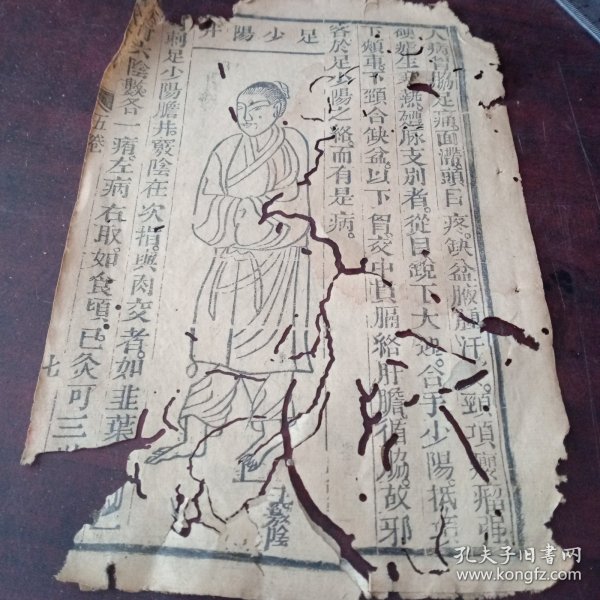 人病胷脇足痛面滯頭目疼缺盆腋腫汗頸項癭瘤
硬疽生寒熱膽脉支别者從目銳下大迎合手少陽抵
頰車下頸合缺盆以下胷交中貫膈絡肝膽循脇故邪
客於足少陽之絡而有是病
足少陽井
竅陰
刺足少陽膽井竅陰在次指與肉交者如韭葉
六陰數各一痏左病右取如食頃已灸可三
五卷
七
孔夫子旧书网
www.kongfz.com